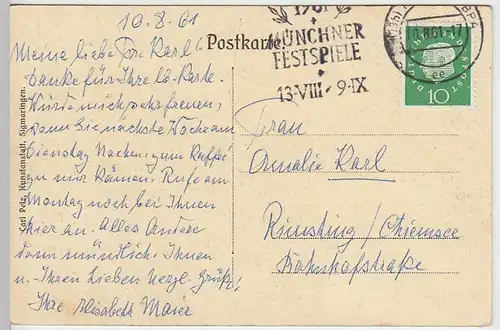 10.8.61
Meine liebe Frau Karl!
Danke für Ihre lb. Karte.
Würde mich sehr freuen,
wenn Sie nächste Woche am
Dienstag Nachm. zum Kaffee
zu mir kämen. Rufe am
Montag noch bei Ihnen
hier an. Alles Andere
dann mündlich. Ihnen
u. Ihren Lieben herzl. Grüße!
Ihre Elisabeth Maier
Carl Petz, Kunstanstalt, Sigmaringen.
Postkarte
1961
MÜNCHNER
FESTSPIELE
13·VIII - 9·IX
10.8.61-17
DEUTSCHE BUNDESPOST
10
Frau
Amalie Karl
Rimsting / Chiemsee
Bahnhofstraße